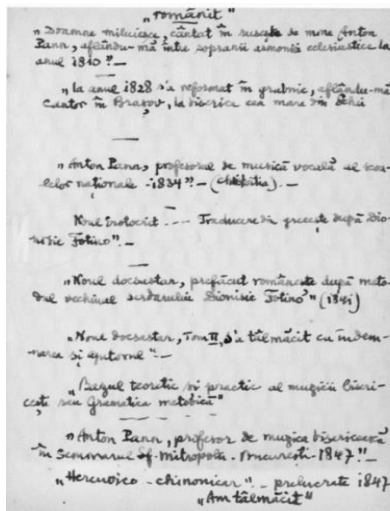 „românit"
„Doamne miluiesc, cântat în de mine Anton
Pann, aflându-mă între sopranii armonii eclesiastice la
anul 1810". —
„la anul 1828 s'a reformat în grabnic, aflându-mă
cantor în Brașov, la biserica cea mare din Schei
„Anton Pann, profesorul de musică vocală al școa-
lelor naționale - 1834" — ( ) —
Noul Irotocrit --- Traducere din grecește după Dio-
nisie Fotino". —
„Noul docsastar, prefăcut românește după meto-
dul vechiul serdarului Dionisie Fotino" (1841)
„Noul docsastar, Tom II, s'a tâlmăcit cu îndem-
narea și ajutorul". —
„Bazul teoretic și practic al muzicii biseri-
cești sau Gramatica melodică"
„Anton Pann, profesor de muzica bisericească
în Seminarul Sf. Mitropolii - București - 1847". —
„Heruvico - chinonicar". - prelucrate 1847
„Am tâlmăcit"